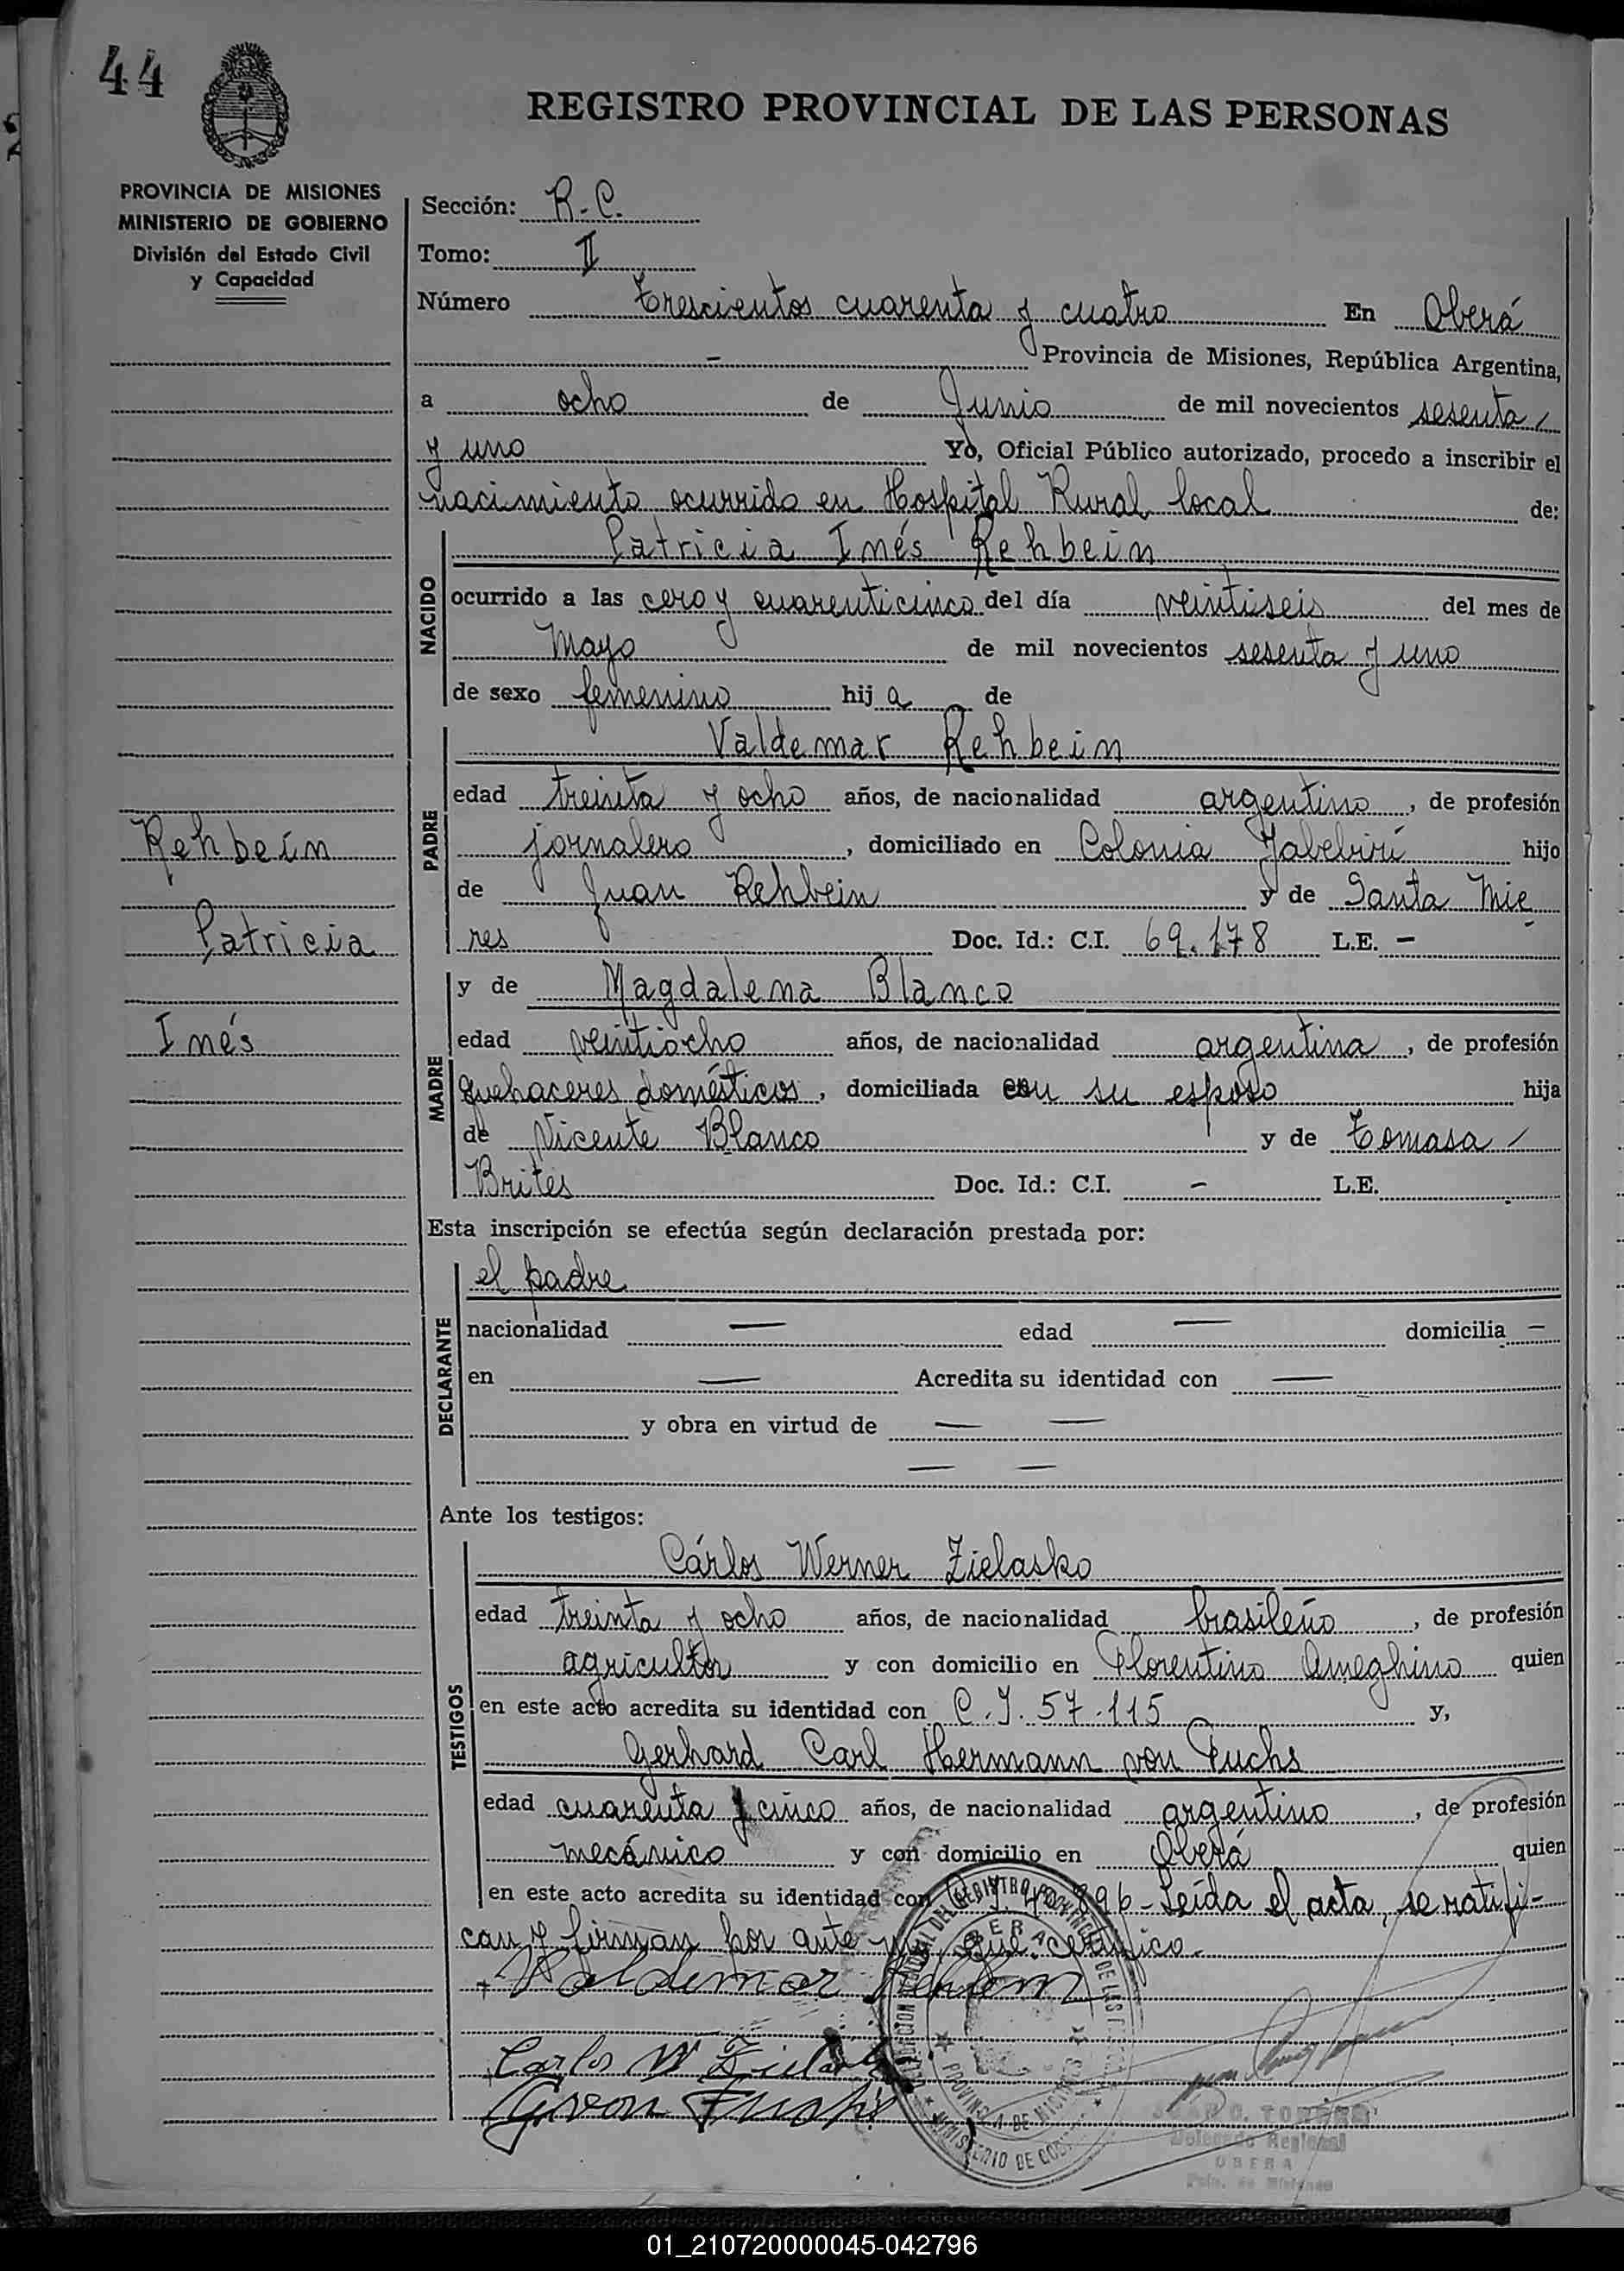 44
REGISTRO PROVINCIAL DE LAS PERSONAS
PROVINCIA DE MISIONES
MINISTERIO DE GOBIERNO
División del Estado Civil
y Capacidad
Sección: R.C.
Tomo: II
Número Trescientos cuarenta y cuatro En Oberá
- Provincia de Misiones, República Argentina,
a ocho de Junio de mil novecientos sesenta
y uno Yo, Oficial Público autorizado, procedo a inscribir el
nacimiento ocurrido en Hospital Rural local de:
NACIDO
Patricia Inés Rehbein
ocurrido a las cero y cuarenticinco del día veintiseis del mes de
Mayo de mil novecientos sesenta y uno
de sexo femenino hij a de
PADRE
Valdemar Rehbein
edad treinta y ocho años, de nacionalidad argentino, de profesión
jornalero, domiciliado en Colonia Yabebirí hijo
de Juan Rehbein y de Santa Mie
res Doc. Id.: C.I. 69.178 L.E. -
Rehbein
Patricia
Inés
MADRE
y de Magdalena Blanco
edad veintiocho años, de nacionalidad argentina, de profesión
quehaceres domésticos, domiciliada con su esposo hija
de Vicente Blanco y de Tomasa
Brites Doc. Id.: C.I. - L.E.
Esta inscripción se efectúa según declaración prestada por:
DECLARANTE
el padre
nacionalidad — edad — domicilia —
en — Acredita su identidad con —
y obra en virtud de — —
— —
Ante los testigos:
TESTIGOS
Cárlos Werner Zielasko
edad treinta y ocho años, de nacionalidad brasileño, de profesión
agricultor y con domicilio en Florentino Ameghino quien
en este acto acredita su identidad con C.I. 57.115 y,
Gerhard Carl Hermann von Fuchs
edad cuarenta y cinco años, de nacionalidad argentino, de profesión
mecánico y con domicilio en Oberá quien
en este acto acredita su identidad con 896-Leída el acta, se ratifi-
can y firman por ante
Valdemar Rehbein
Carlos W Zielasko
G von Fuchs
PROVINCIA DE MISIONES
MINISTERIO DE
JUAN C. TORRES
Delegado Regional
OBERA
Pcia. de Misiones
01_210720000045-042796